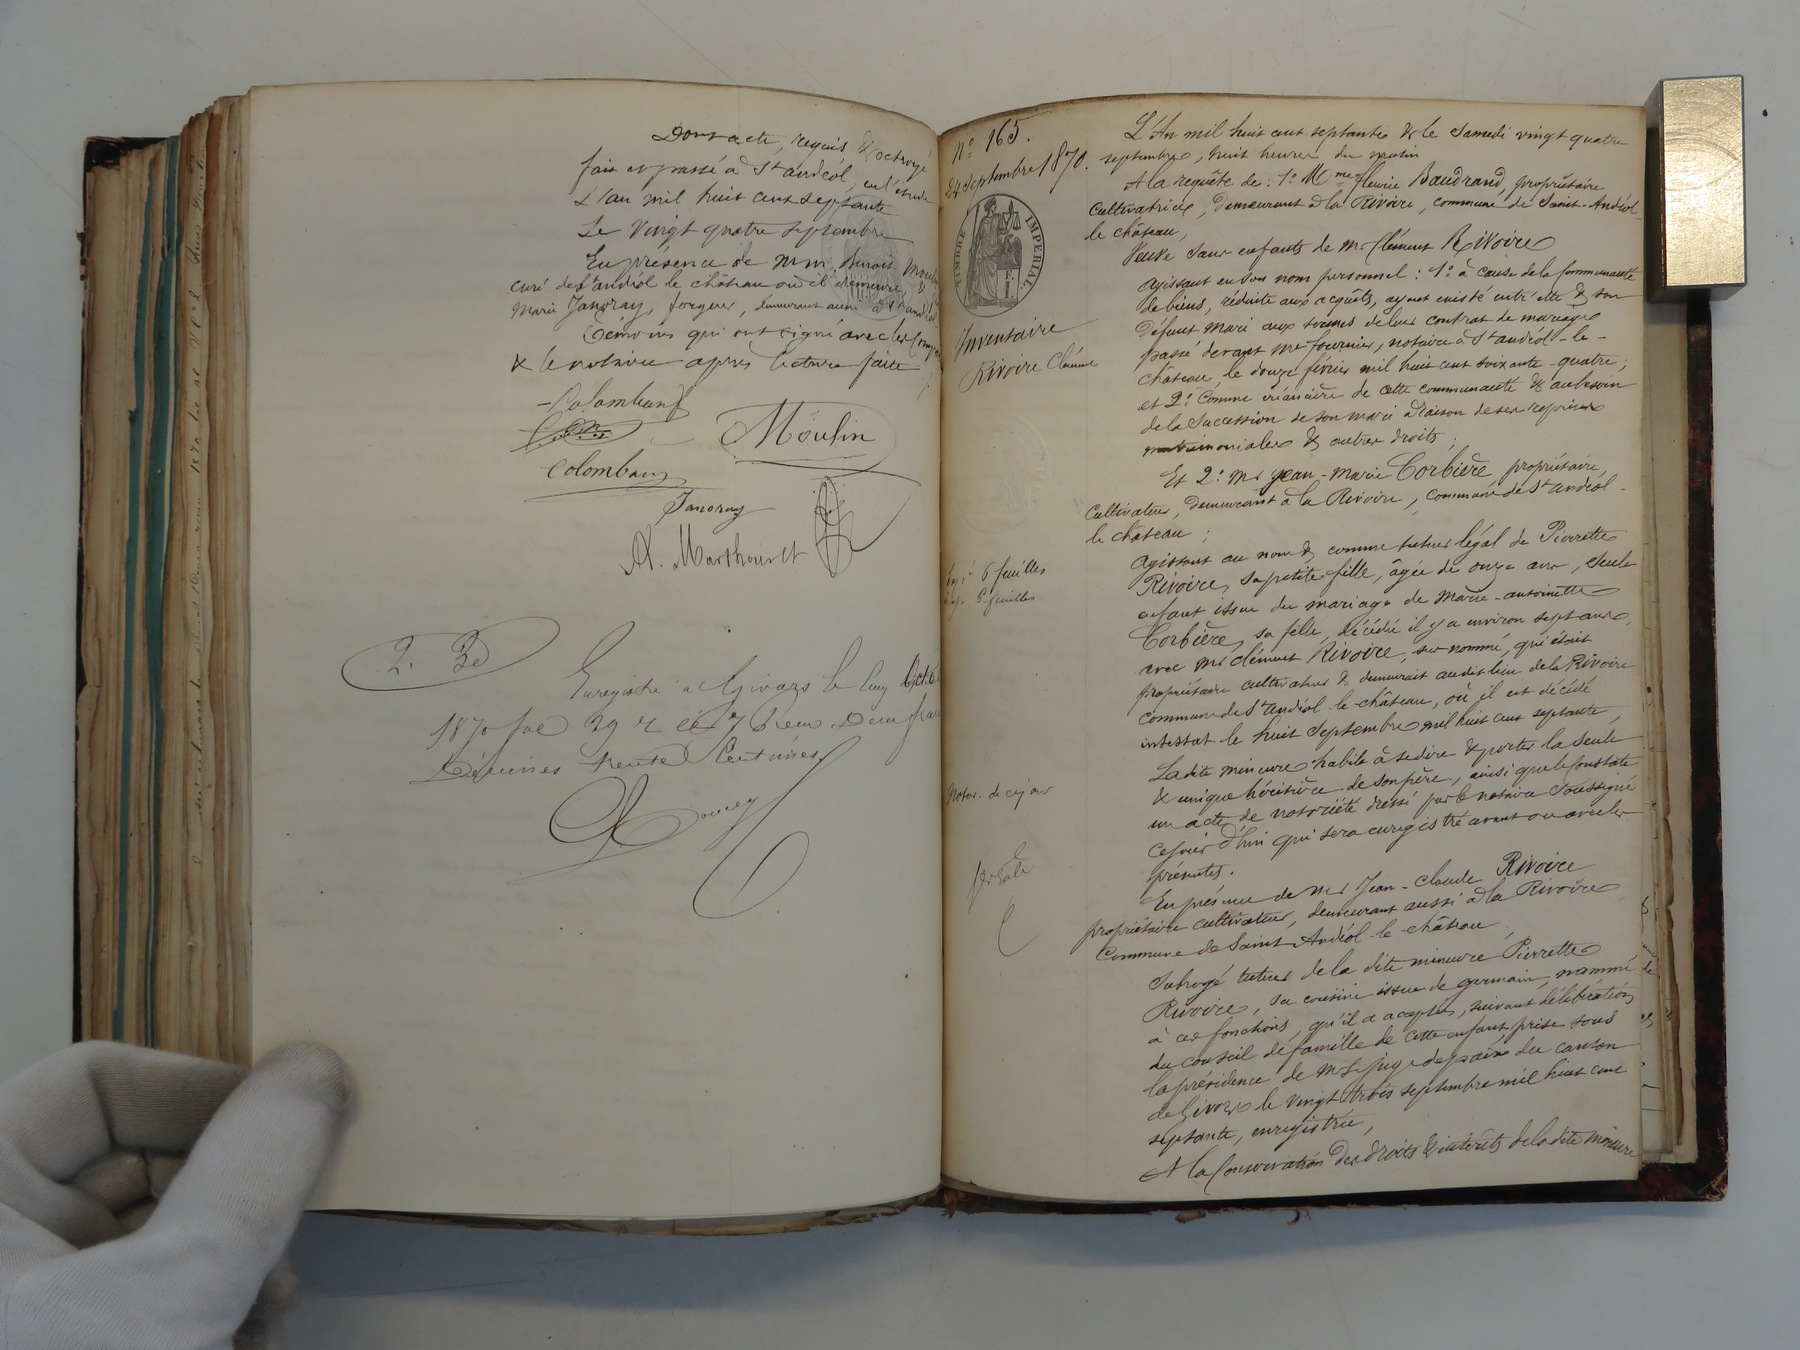 Dont acte, requis & octroyé
fait et passé à St andéol, en l'étude
L'an mil huit cent septante
Le Vingt quatre septembre
En présence de MM. Benoit Moulin
curé de St andéol le château où il demeure, &
Marie Janoray, forgeur, demeurant aussi à St andéol
témoins qui ont signé avec les Comp
& le notaire après lecture faite
Colombans
Moulin
Colomban
Janoray
A. Marthouret
2. 30
Enregistré à Givors le Cinq Oct.
1870 fol 29 r Reçu Deux francs
Décimes trente Centimes
N° 165.
24 Septembre 1870.
TIMBRE IMPERIAL
Inventaire
Rivoire Clément
6 feuilles
6 feuilles
Notor. de ce jour
L'An mil huit cent septante & le Samedi vingt quatre
septembre, huit heures du matin
A la requête de : 1° Mme fleurie Baudrand, propriétaire
Cultivatrice, demeurant à la Rivoire, commune de Saint-Andéol-
le château,
Veuve sans enfants de Mr Clément Rivoire
Agissant en son nom personnel : 1° à cause de la Communauté
de biens, réduite aux acquêts, ayant existé entr'elle & son
défunt mari aux termes de leur contrat de mariage
passé devant Me fournier, notaire à St andéol-le-
château, le douze février mil huit cent soixante-quatre ;
et 2° Comme créancière de cette communauté & au besoin
de la Succession de son mari à raison de ses reprises
matrimoniales & autres droits ;
Et 2° Mr Jean-Marie Corbière propriétaire,
Cultivateur, demeurant à la Rivoire, commune de St andéol-
le château ;
Agissant au nom & comme tuteur légal de Pierrette
Rivoire, sa petite fille, âgée de onze ans, seule
enfant issue du mariage de Marie-antoinette
Corbière, sa fille, décédée il y a environ sept ans,
avec Mr Clément Rivoire, sus nommé, qui était
propriétaire cultivateur & demeurait audit lieu de la Rivoire
commune de St andéol-le-château, où il est décédé
intestat le huit Septembre mil huit cent septante,
Ladite mineure habile à se dire & porter la seule
& unique héritière de son père, ainsi que le constate
un acte de notoriété dressé par le notaire Soussigné
cejourd'hui qui sera enregistré avant ou avec les
présentes.
En présence de Mr Jean-Claude Rivoire
propriétaire cultivateur, demeurant aussi à la Rivoire
Commune de Saint Andéol-le-château,
Subrogé tuteur de la dite mineure Pierrette
Rivoire, sa cousine issue de germain, nommé
à ces fonctions, qu'il a acceptées, suivant délibération
du conseil de famille de cette enfant, prise sous
la présidence de Mr le juge de paix du canton
de Givors le vingt trois septembre mil huit cent
septante, enregistrée,
A la Conservation des droits & intérêts de la dite mineure